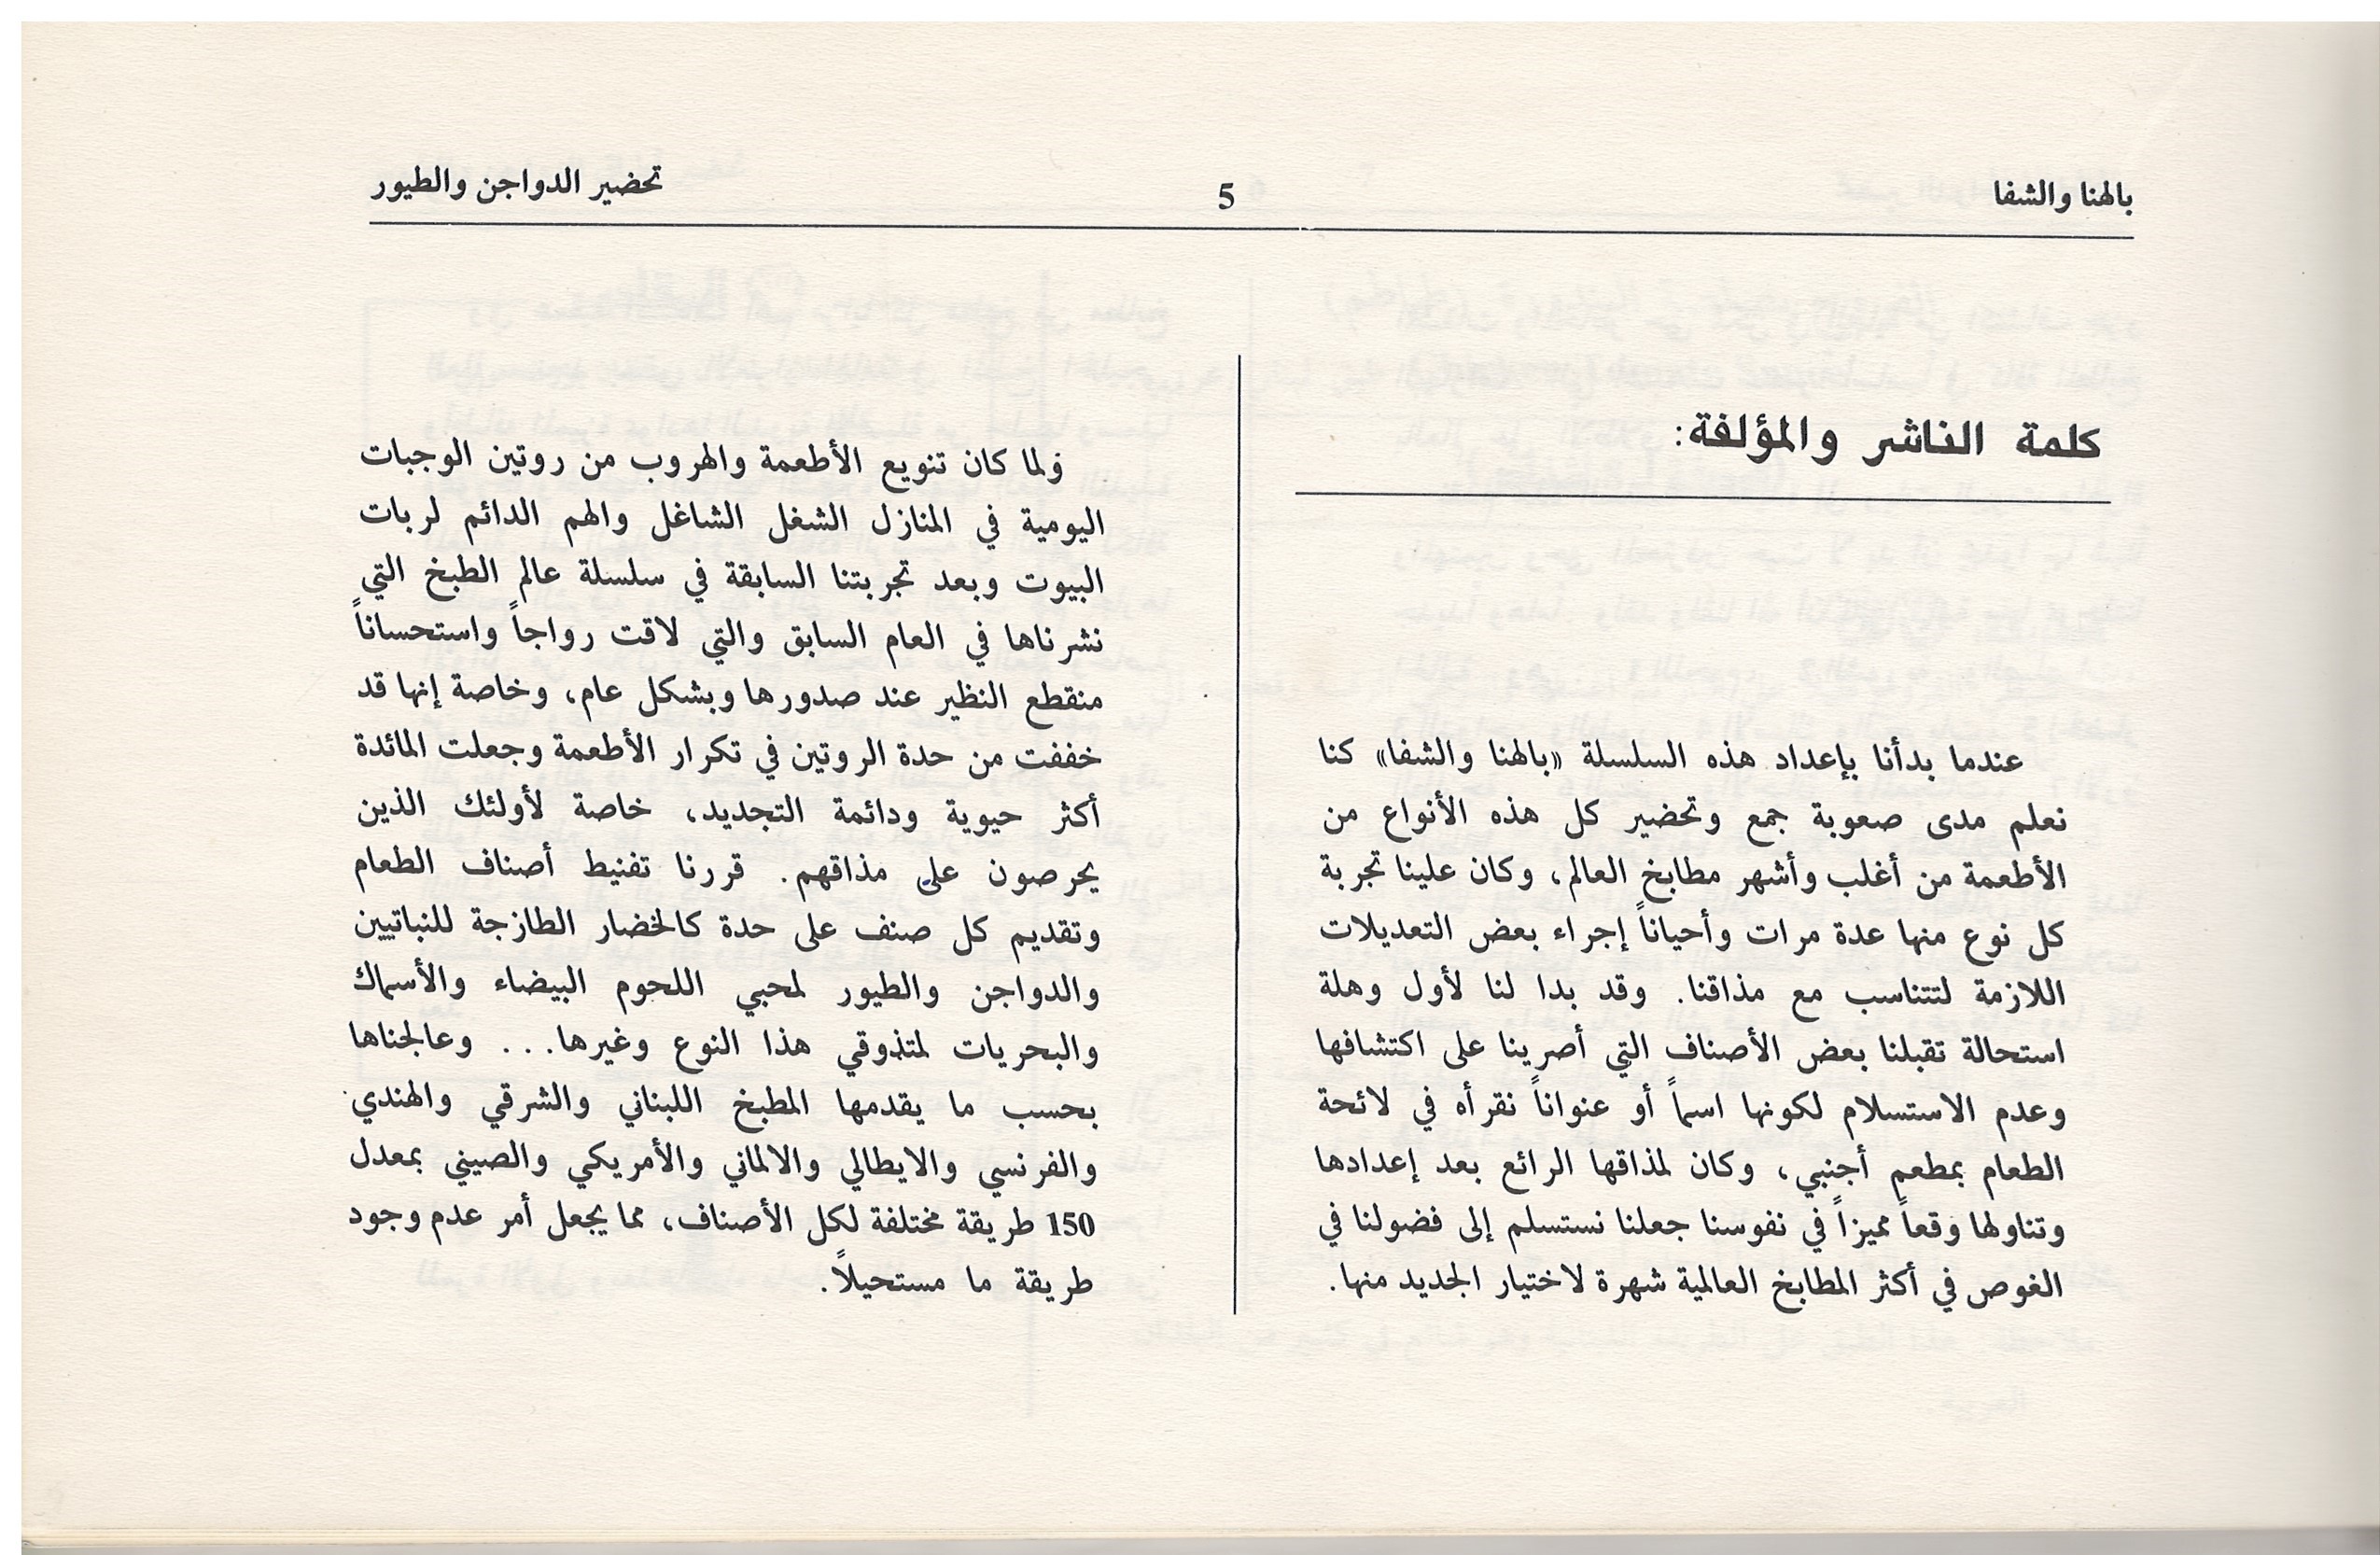 بالهنا والشفا
5
تحضير الدواجن والطيور
كلمة الناشر والمؤلفة:
عندما بدأنا بإعداد هذه السلسلة «بالهنا والشفا» كنا
نعلم مدى صعوبة جمع وتحضير كل هذه الأنواع من
الأطعمة من أغلب وأشهر مطابخ العالم، وكان علينا تجربة
كل نوع منها عدة مرات وأحياناً إجراء بعض التعديلات
اللازمة لتتناسب مع مذاقنا. وقد بدا لنا لأول وهلة
استحالة تقبلنا بعض الأصناف التي أصرينا على اكتشافها
وعدم الاستسلام لكونها اسماً أو عنواناً نقرأه في لائحة
الطعام بمطعم أجنبي، وكان لمذاقها الرائع بعد إعدادها
وتناولها وقعاً مميزاً في نفوسنا جعلنا نستسلم إلى فضولنا في
الغوص في أكثر المطابخ العالمية شهرة لاختيار الجديد منها.
ولما كان تنويع الأطعمة والهروب من روتين الوجبات
اليومية في المنازل الشغل الشاغل والهم الدائم لربات
البيوت وبعد تجربتنا السابقة في سلسلة عالم الطبخ التي
نشرناها في العام السابق والتي لاقت رواجاً واستحساناً
منقطع النظير عند صدورها وبشكل عام، وخاصة إنها قد
خففت من حدة الروتين في تكرار الأطعمة وجعلت المائدة
أكثر حيوية ودائمة التجديد، خاصة لأولئك الذين
يحرصون على مذاقهم. قررنا تفنيط أصناف الطعام
وتقديم كل صنف على حدة كالخضار الطازجة للنباتيين
والدواجن والطيور لمحبي اللحوم البيضاء والأسماك
والبحريات لمتذوقي هذا النوع وغيرها... وعالجناها
بحسب ما يقدمها المطبخ اللبناني والشرقي والهندي
والفرنسي والايطالي والالماني والأمريكي والصيني بمعدل
150 طريقة مختلفة لكل الأصناف، مما يجعل أمر عدم وجود
طريقة ما مستحيلاً.